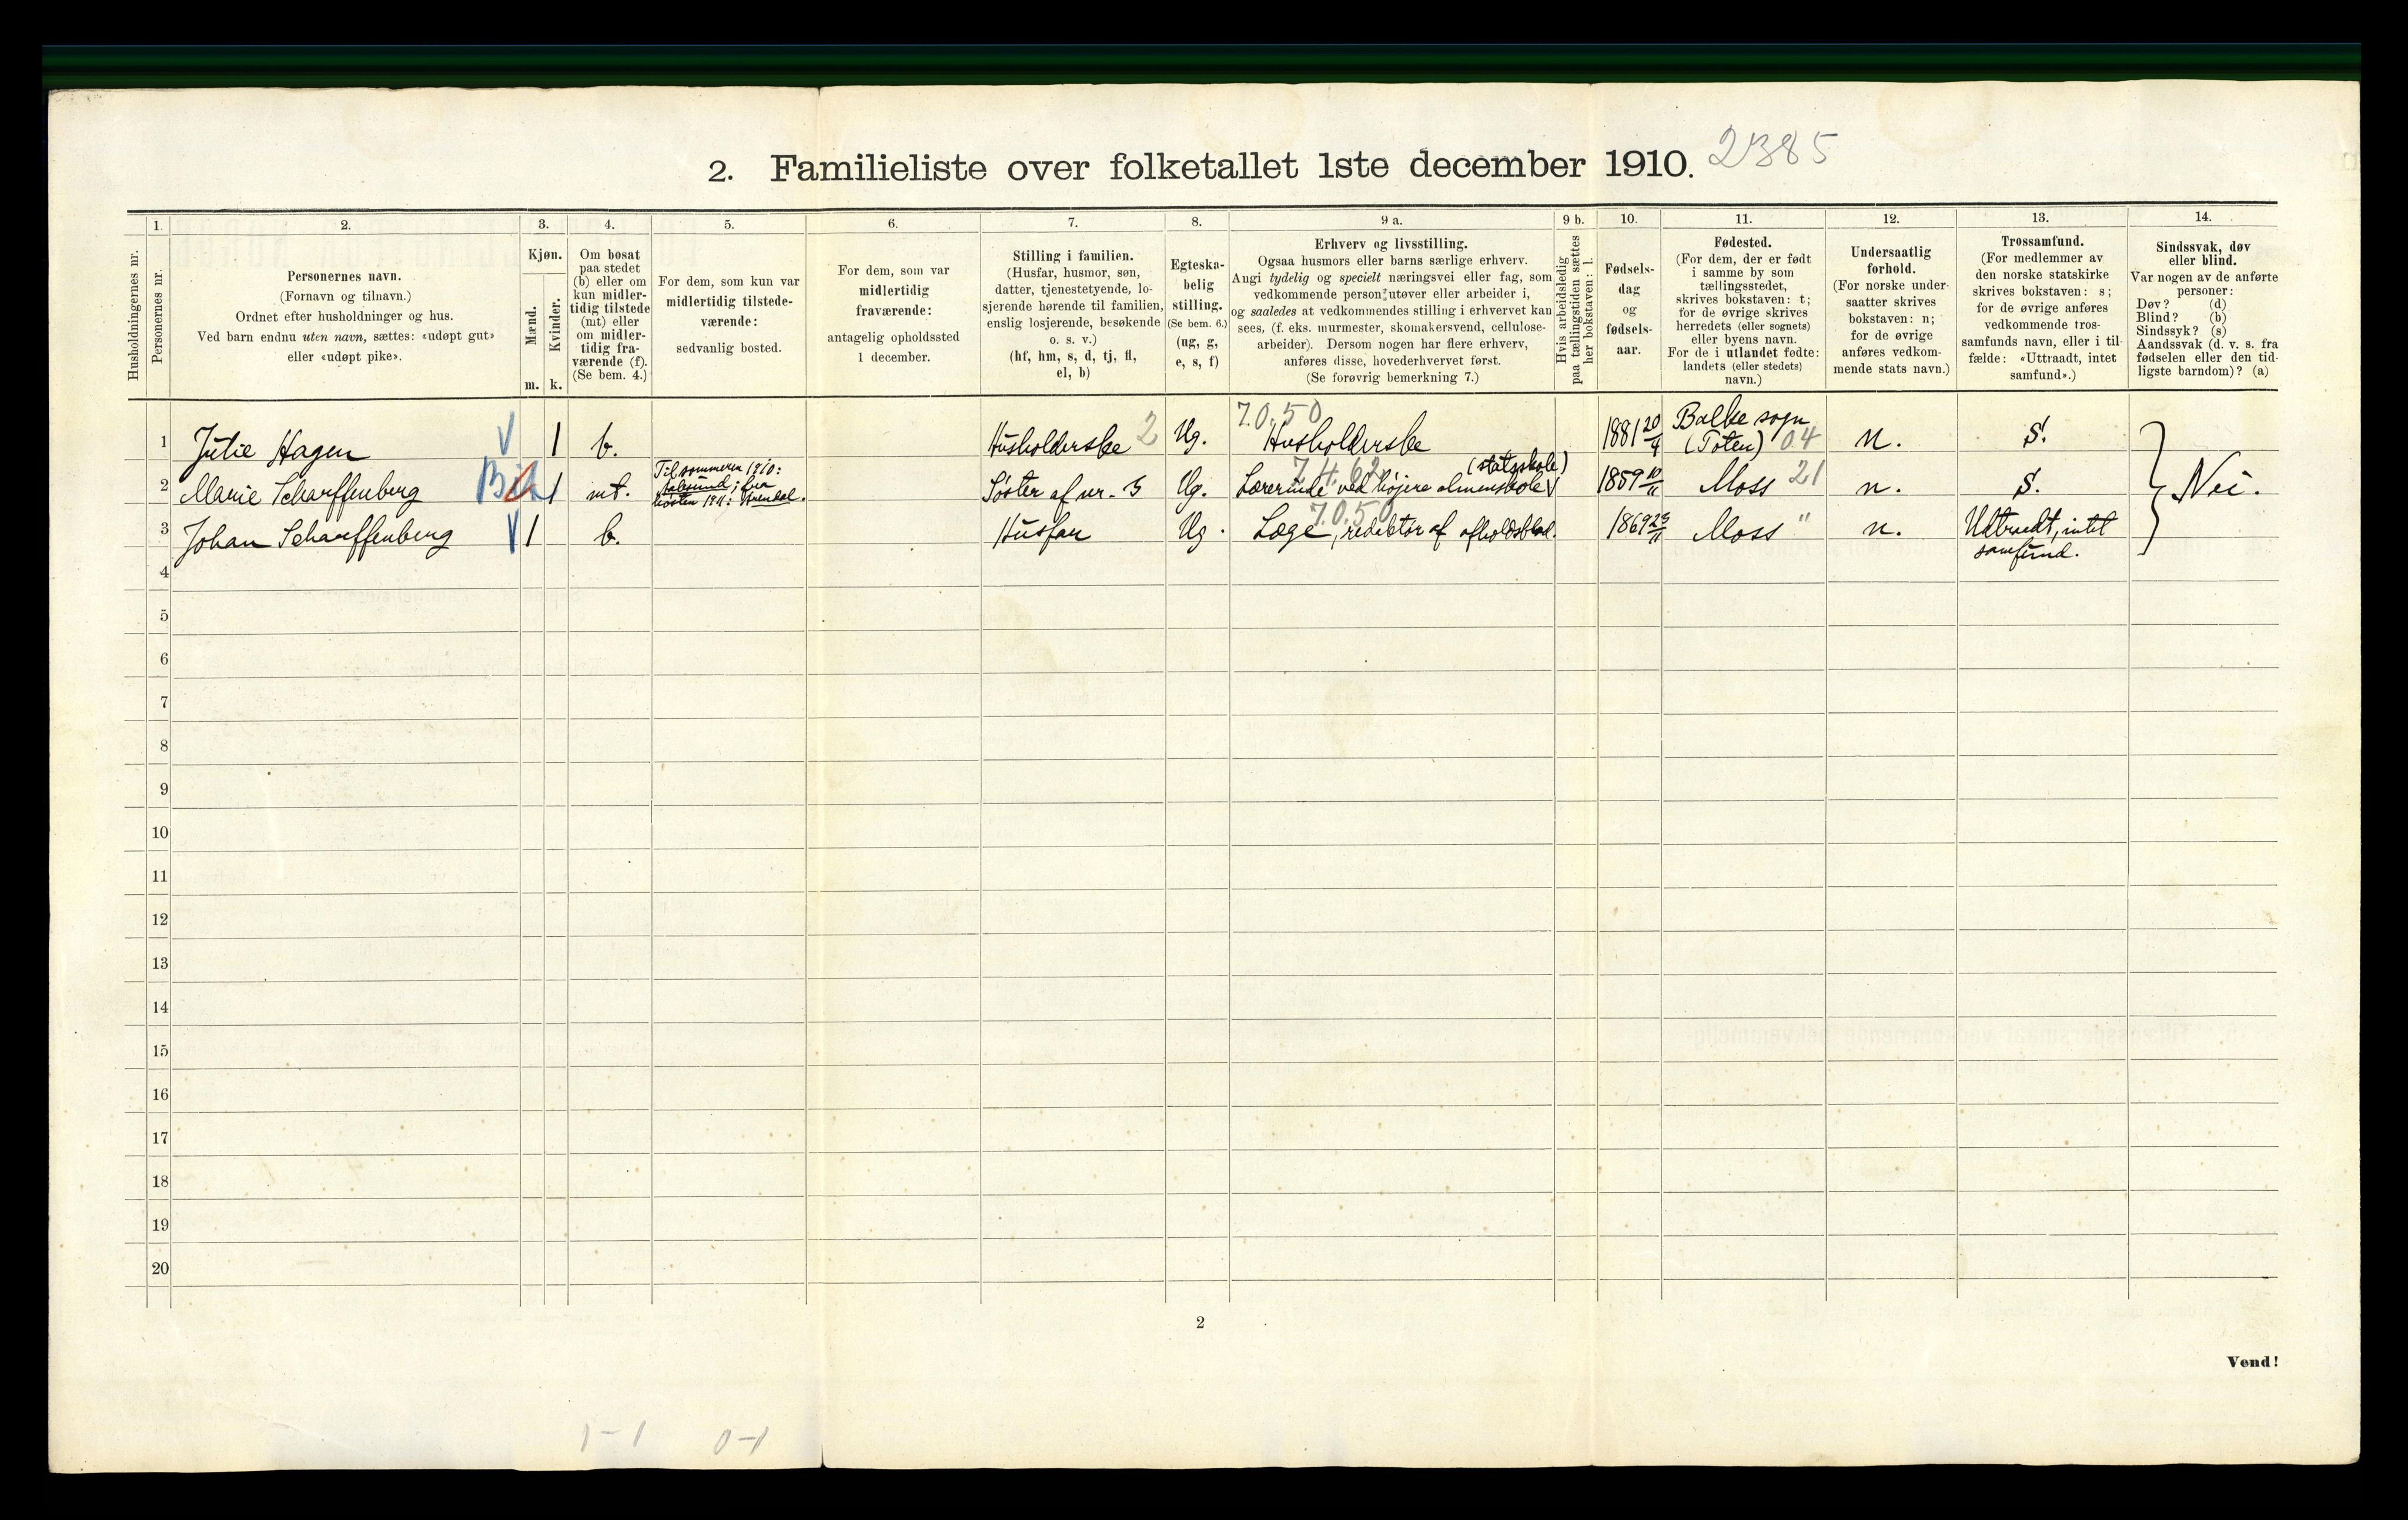 2. Familieliste over folketallet 1ste december 1910. 2385
Husholdningernes nr.
1.
Personernes nr.
2.
Personernes navn.
(Fornavn og tilnavn.)
Ordnet efter husholdninger og hus.
Ved barn endnu uten navn, sættes: «udøpt gut»
eller «udøpt pike».
3.
Kjøn.
Mænd.
Kvinder.
m. k.
4.
Om bosat
paa stedet
(b) eller om
kun midler-
tidig tilstede
(mt) eller
om midler-
tidig fra-
værende (f).
(Se bem. 4.)
5.
For dem, som kun var
midlertidig tilstede-
værende:
sedvanlig bosted.
6.
For dem, som var
midlertidig
fraværende:
antagelig opholdssted
1 december.
7.
Stilling i familien.
(Husfar, husmor, søn,
datter, tjenestetyende, lo-
sjerende hørende til familien,
enslig losjerende, besøkende
o. s. v.)
(hf, hm, s, d, tj, fl,
el, b)
8.
Egteska-
belig
stilling.
(Se bem. 6.)
(ug, g,
e, s, f)
9 a.
Erhverv og livsstilling.
Ogsaa husmors eller barns særlige erhverv.
Angi tydelig og specielt næringsvei eller fag, som
vedkommende person utøver eller arbeider i,
og saaledes at vedkommendes stilling i erhvervet kan
sees, (f. eks. murmester, skomakersvend, cellulose-
arbeider). Dersom nogen har flere erhverv,
anføres disse, hovederhvervet først.
(Se forøvrig bemerkning 7.)
9 b.
Hvis arbeidsledig
paa tællingstiden sættes
her bokstaven: l.
10.
Fødsels-
dag
og
fødsels-
aar.
11.
Fødested.
(For dem, der er født
i samme by som
tællingsstedet,
skrives bokstaven: t;
for de øvrige skrives
herredets (eller sognets)
eller byens navn.
For de i utlandet fødte:
landets (eller stedets)
navn.)
12.
Undersaatlig
forhold.
(For norske under-
saatter skrives
bokstaven: n;
for de øvrige
anføres vedkom-
mende stats navn.)
13.
Trossamfund.
(For medlemmer av
den norske statskirke
skrives bokstaven: s;
for de øvrige anføres
vedkommende tros-
samfunds navn, eller i til-
fælde: «Uttraadt, intet
samfund».)
14.
Sindssvak, døv
eller blind.
Var nogen av de anførte
personer:
Døv? (d)
Blind? (b)
Sindssyk? (s)
Aandssvak (d. v. s. fra
fødselen eller den tid-
ligste barndom)? (a)
1 Julie Hagen V 1 b. Husholderske 2 Ug. 7.0.50 Husholderske 1881 20/4 Balke sogn (Toten) 04 n. S.
2 Marie Scharffenberg 1 mt. Til sommeren 1910: ; fra høsten 1911: Arendal. Søster af nr. 3 Ug. 7.4.62 Lærerinde ved højere almenskole (statsskole) 1859 Moss 21 n. S. Nei.
3 Johan Scharffenberg V 1 b. Husfar Ug. 7.0.50 Læge, redaktør af afholdsblad. 1869 Moss " n. Udtraadt, intet samfund.
4
5
6
7
8
9
10
11
12
13
14
15
16
17
18
19
20
2
Vend!
1-1 0-1